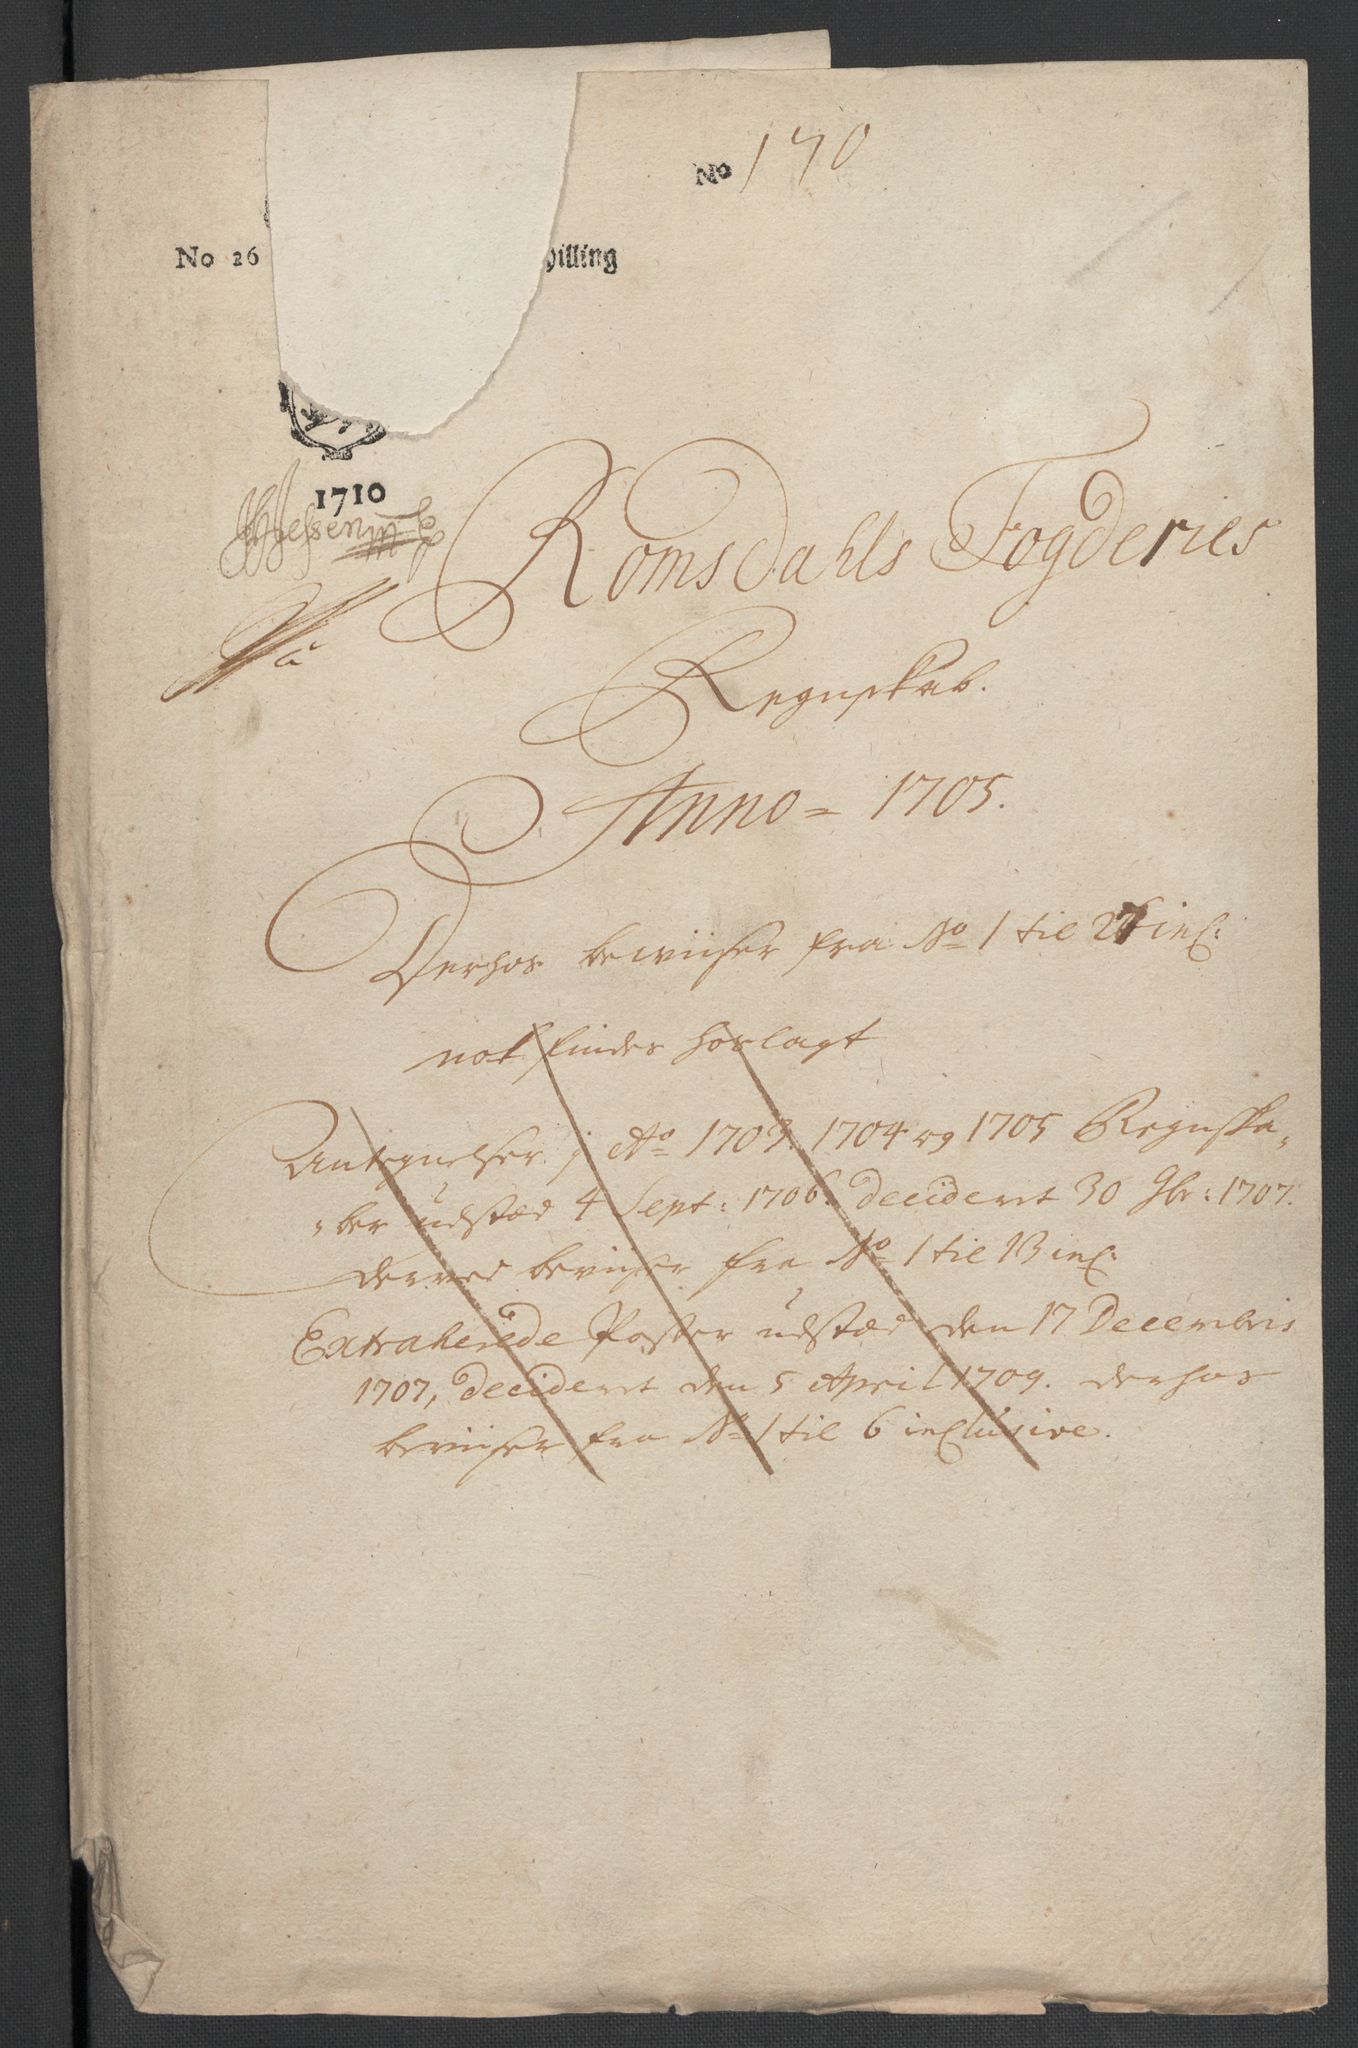 No 170
No 26 hilling
1710
Romsdahls Fogderies
Regnskab.
Anno = 1705.
Derhos bewiiser fra No 1 til 27 incl:
not findes hoslagt
Antegnelser j Ao 1703. 1704 og 1705 Regnska-
-ber udstæd 4 Sept: 1706. decideret 30 9br: 1707.
derved beviiser fra No 1 til 13 incl:
Extraherede Poster udstæd den 17 Decembris
1707, decideret den 5 April 1709. derhos
beviiser fra No 1 til 6 inclusive.